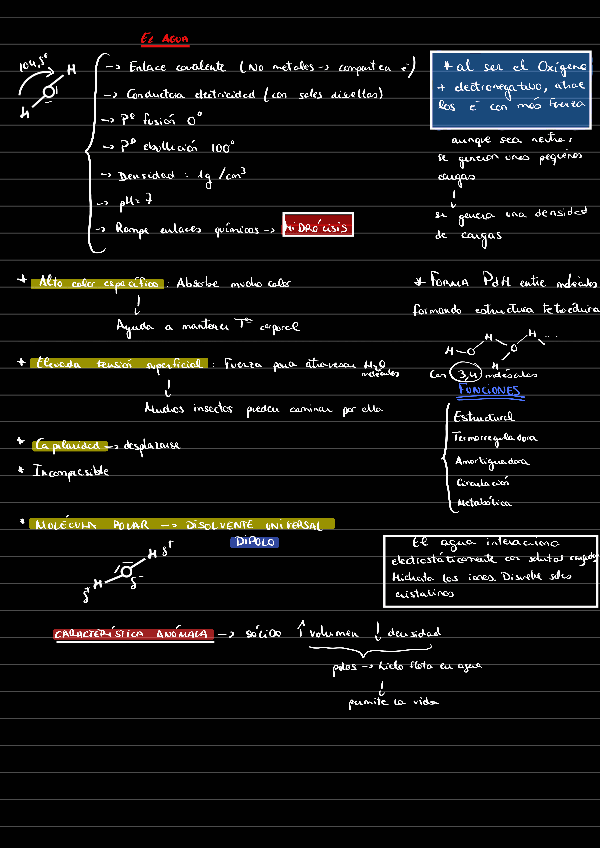 El AGUA
104,5º
H
H
→ Enlace covalente (No metales → comparten e⁻)
→ Conductora electricidad (con sales disueltas)
→ Pº fusión 0º
→ Pº ebullición 100º
→ Densidad : 1g /cm³
→ pH= 7
→ Rompe enlaces químicos → HIDRÓLISIS
* al ser el Oxígeno
+ electronegativo, atrae
los e⁻ con más fuerza
aunque sea neutra,
se generan unas pequeñas
cargas
↓
se genera una densidad
de cargas
* Alto calor específico : Absorbe mucho calor
↓
Ayuda a mantener Tª corporal
* Elevada tensión superficial : Fuerza para atravesar H₂O
moléculas
↓
Muchos insectos pueden caminar por ella
* Capilaridad → desplazarse
* Incompresible
* FORMA PdH entre moléculas
formando estructura tetraédrica
H O H O H ...
H
Con 3,4 moléculas
FUNCIONES
Estructural
Termorreguladora
Amortiguadora
Circulación
Metabólica
* MOLÉCULA POLAR → DISOLVENTE UNIVERSAL
DIPOLO
H δ⁺
H δ⁻
δ⁺
El agua interacciona
electrostáticamente con solutos cargados
Hidrata los iones. Disuelve sales
cristalinas
CARACTERÍSTICA ANÓMALA → sólido ↑ volumen ↓ densidad
polos → hielo flota en agua
↓
permite la vida